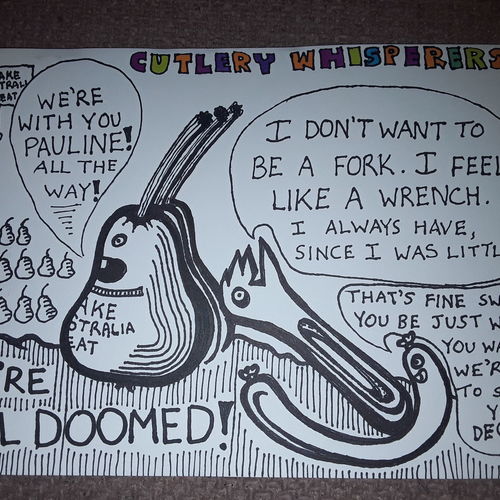 CUTLERY WHISPERERS
WE'RE
WITH YOU
PAULINE!
ALL THE
WAY!
I DON'T WANT TO
BE A FORK. I FEEL
LIKE A WRENCH.
I ALWAYS HAVE,
SINCE I WAS LITTL
THAT'S FINE SW
YOU BE JUST W
YOU WA
WE'R
TO S
Y
DEC
AKE
TRALI
EAT
AKE
STRALIA
EAT
'RE
L DOOMED!